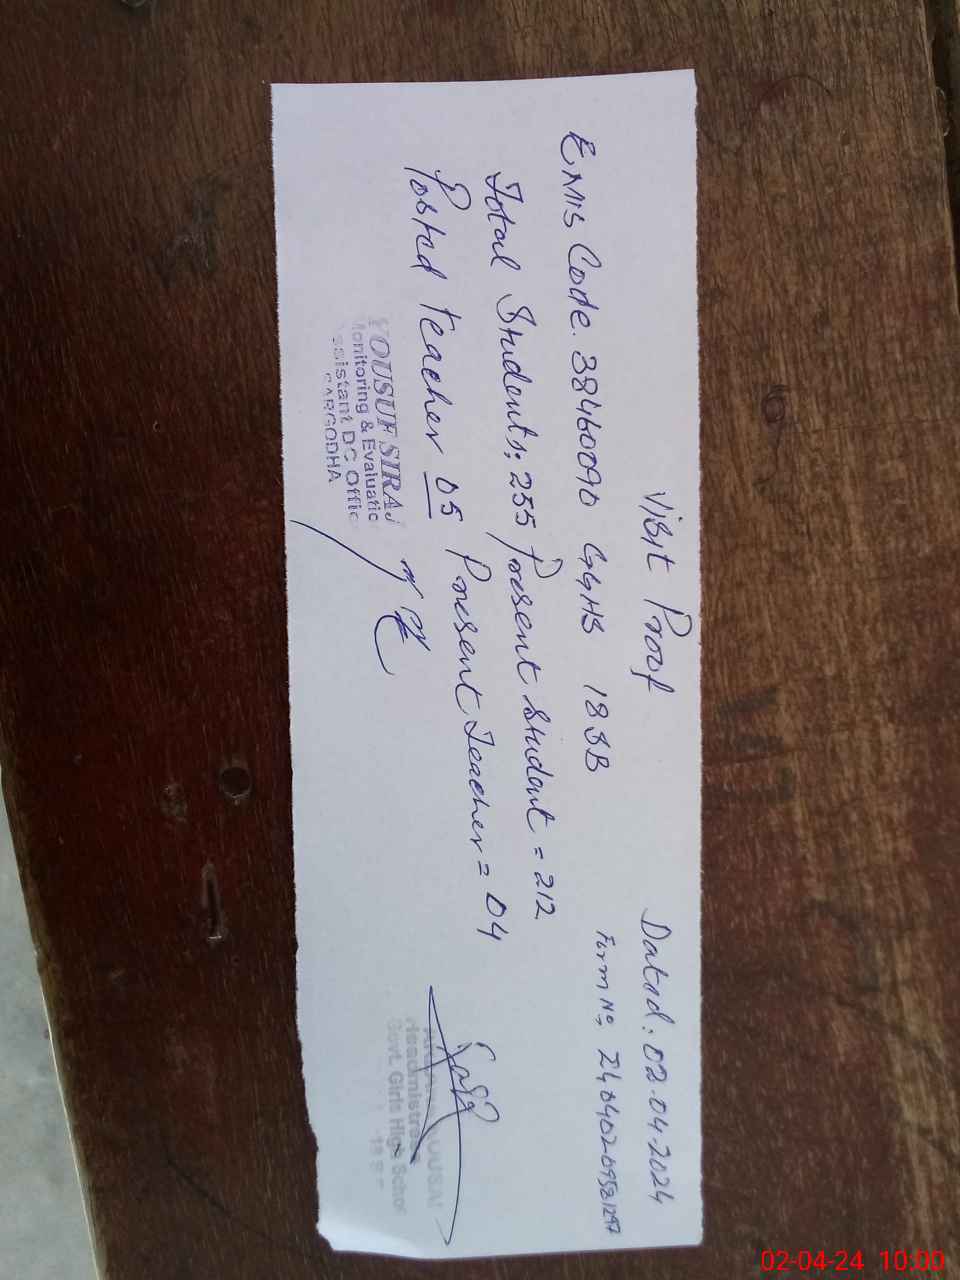 Visit Proof Dated: 02.04.2024
Emis Code. 38460090 GGHS 18SB Form No,
Total Students; 255 Present Student = 212
Posted Teacher 05 Present Teacher = 04
YOUSUF SIRAJ
Monitoring & Evaluatic
ssistant DC Offic
SARGODHA
Headmistress
Govt. Girls High School
02-04-24 10:00